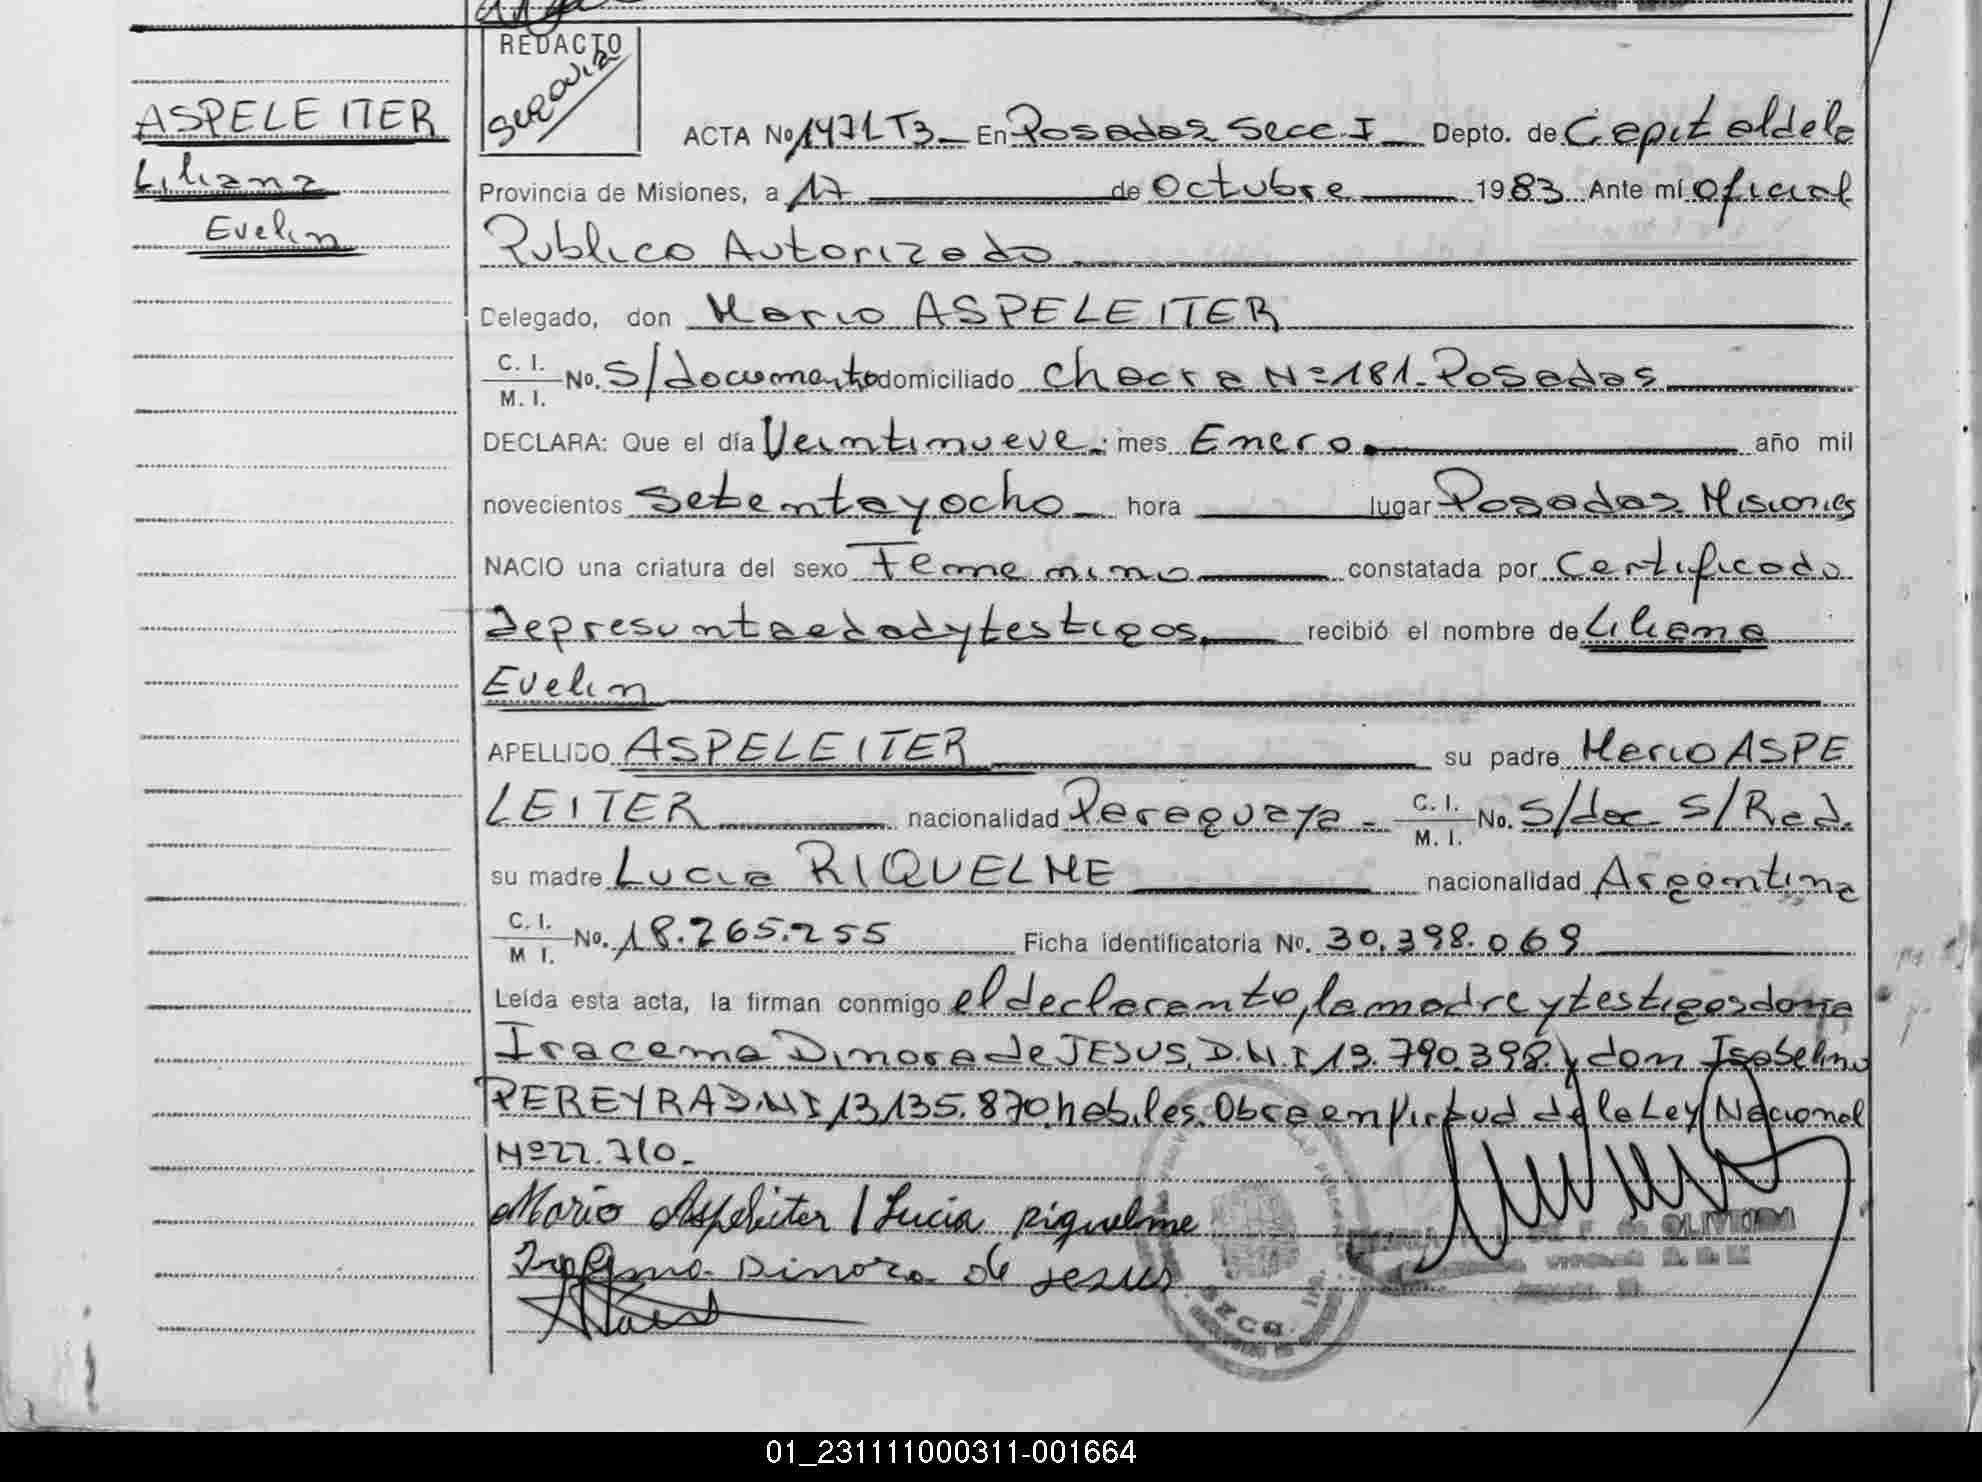 REDACTO
Segovia
ASPELEITER
Liliana
Evelin
ACTA No 1471 T3 En Posadas Secc. I Depto. de Capital de la
Provincia de Misiones, a 17 de Octubre 1983. Ante mí Oficial
Publico Autorizado
Delegado, don Mario ASPELEITER
C. I. M. I. No. S/documento domiciliado Chacra Nº 181. Posadas
DECLARA: Que el día Veintinueve. mes Enero. año mil
novecientos Setenta y ocho hora lugar Posadas Misiones
NACIO una criatura del sexo Femenino constatada por Certificado
de presunta edad y testigos. recibió el nombre de Liliana
Evelin
APELLIDO ASPELEITER su padre Mario ASPE
LEITER nacionalidad Paraguaya - C. I. M. I. No. S/doc S/Rad.
su madre Lucia RIQUELME nacionalidad Argentina
C. I. M I. No. 18.265.255 Ficha identificatoria No. 30.398.069
Leída esta acta, la firman conmigo el declarante, la madre y testigos doña
Iracema Dinora de JESUS, D.N.I 13.790.398. y don Isabelino
PEREYRA D.N.I 13.135.870, habiles. Obra en Virtud de la Ley Nacional
Nº 22.710.
Mario Aspeleiter / Lucia Riquelme
Iracema Dinora de Jesus
DE OLIVEIRA
SECC.
01_231111000311-001664